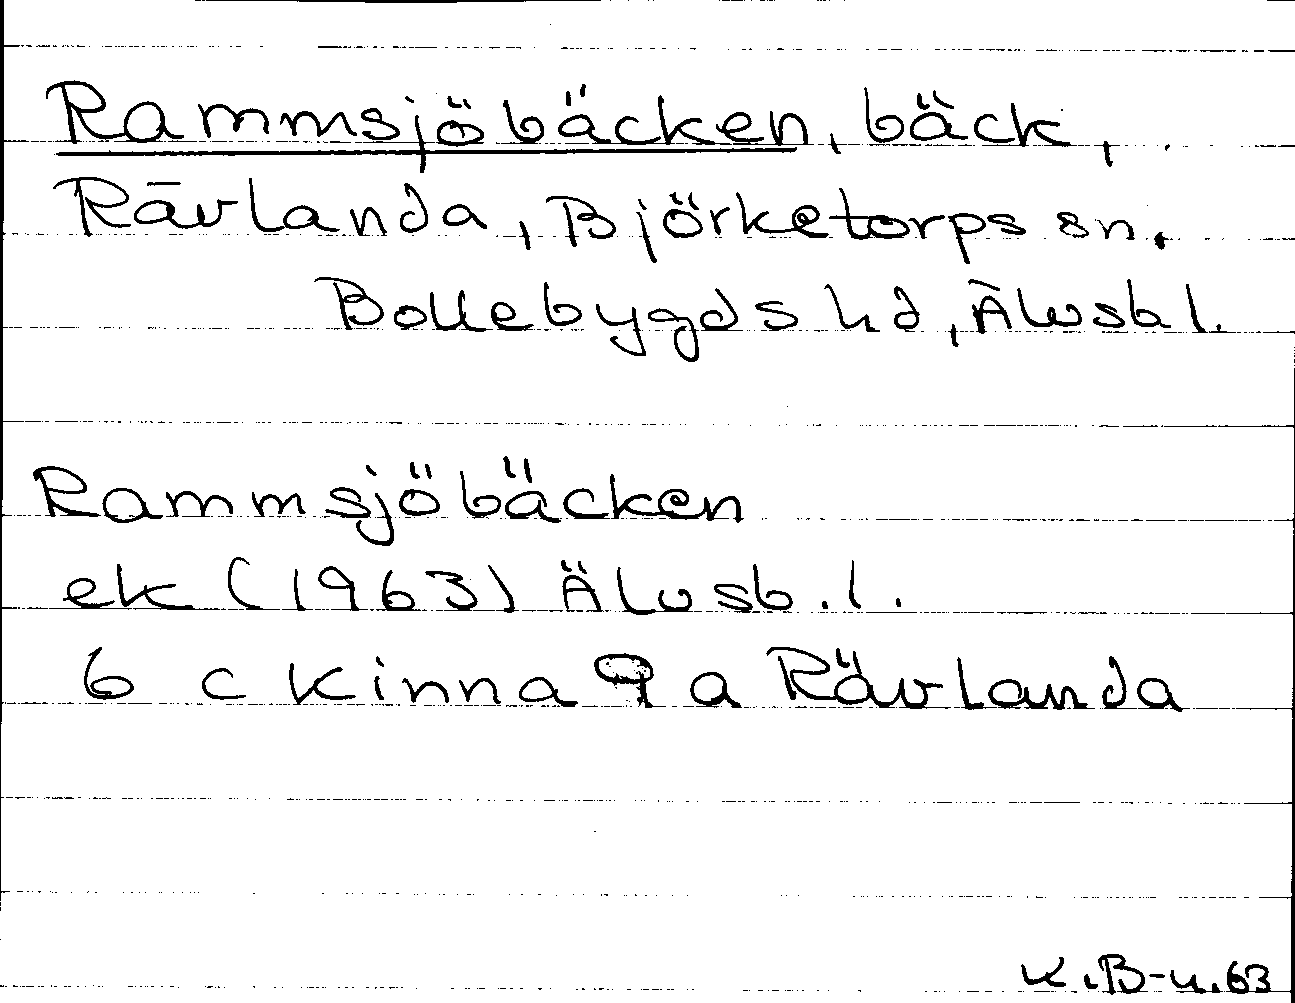 Rammsjöbäcken, bäck,
Rävlanda, Björketorps sn.
Bollebygds hd, Älvsb l.
Rammsjöbäcken
ek (1963) Älvsb. l.
6 c Kinna 9 a Rävlanda
K.B-u.63